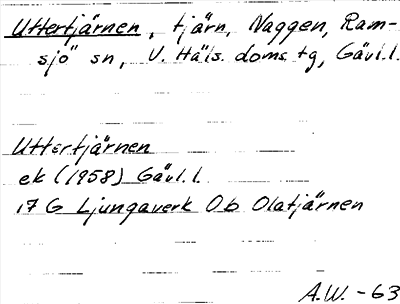 Uttertjärnen, tjärn, Naggen, Ram-
sjö sn, V. Häls. doms.tg, Gävl.l.
Uttertjärnen
ek (1958) Gävl.l.
17 G Ljungaverk 0b Olatjärnen
A.W. -63